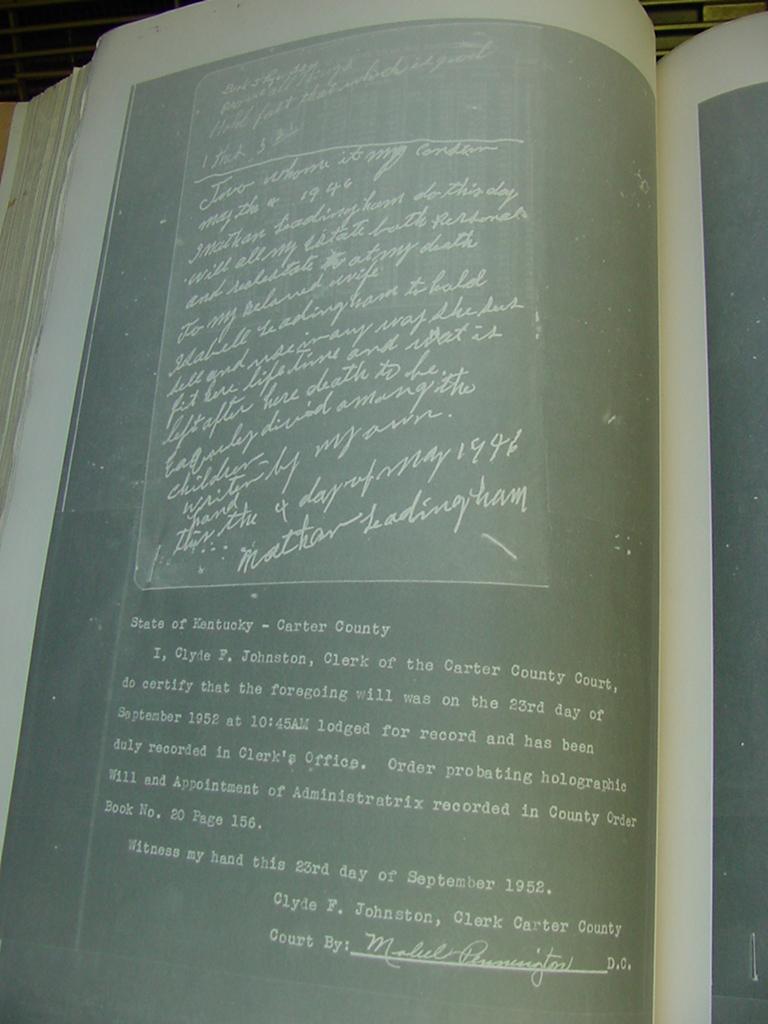 prove all things
Hold fast that which is good
1 Thes. 5
Two whome it my Consern
may the 4 1946
I Nathan Leadingham do this day
will all my Estate both Personal
and realestate at my death
To my Belaved wife
Isabell Leadingham to hald
sell and use in any way she sees
fit here life time and what is
left after here death to be.
Eaqualy divid among the
children
writen by my own.
hand
this the 4 day of may 1946
Nathan Leadingham
State of Kentucky - Carter County
I, Clyde F. Johnston, Clerk of the Carter County Court,
do certify that the foregoing will was on the 23rd day of
September 1952 at 10:45AM lodged for record and has been
duly recorded in Clerk's Office. Order probating holographic
Will and Appointment of Administratrix recorded in County Order
Book No. 20 Page 156.
Witness my hand this 23rd day of September 1952.
Clyde F. Johnston, Clerk Carter County
Court By: Mabel Pennington D.C.